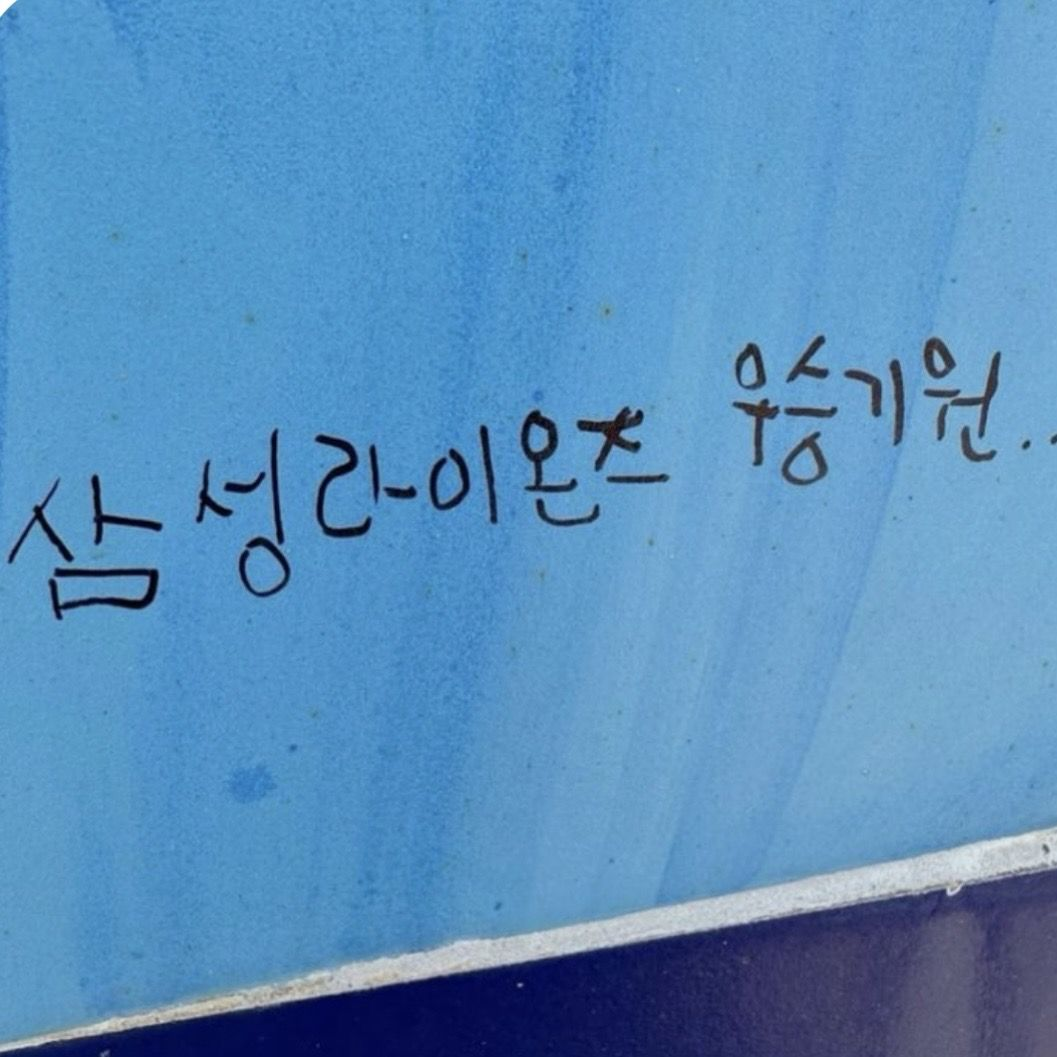 삼성라이온즈 우승기원..